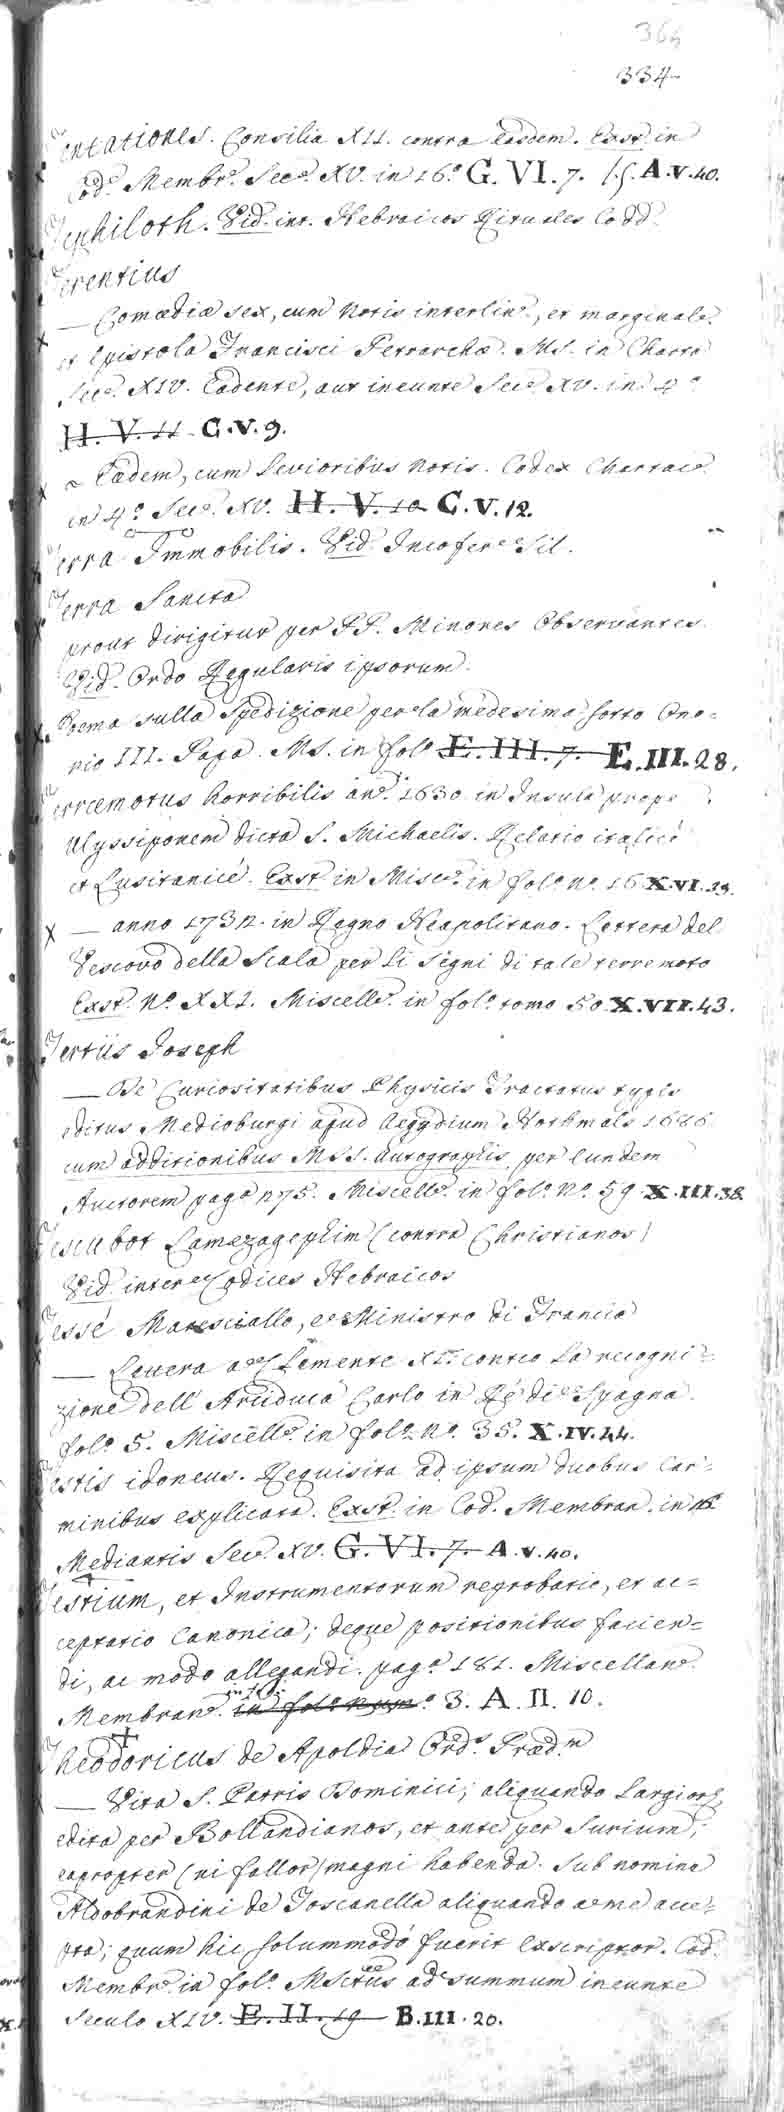 364
334
Tentationes. Consilia XII. contra easdem. Exst. in
Cod.e Membr.o Sec.o XV. in 16.o G. VI. 7. A.V.40.
Tephiloth. Vid. int. Hebraicos Rituales Codd.
Terentius
— Comœdiæ sex, cum Notis interlin.s, et marginale.s
et Epistola Francisci Petrarchæ. MS. in Charta
Sec.o XIV. Cadente, aut ineunte Sec.o XV. in 4.o
H. V. 11. C.V.9.
~ Eædem, cum Levioribus Notis. Codex Chartac.s
in 4.o Sec.o XV. H. V. 10 C.V.12.
Terra Immobilis. Vid. Incofer Sil.
Terra Sancta
prout dirigitur per PP. Minores Observantes.
Vid. Ordo Regularis ipsorum.
Poema sulla Spedizione per la medesima sotto Ono-
rio III. Papa. MS. in fol.o E. III. 7. E.III.28.
Terræmotus horribilis an.o 1630 in Insula prope
Ulyssiponem dicta S. Michaelis. Relatio italicè
et Lusitanicé. Exst. in Misc.o in fol.o N.o 16 X.VI.
— anno 1732. in Regno Neapolitano. Lettera del
Vescovo della Scala per li segni di tale terremoto
Exst. N.o XXI. Miscell.o in fol.o tomo 50. X.VII.43.
Tertiis Joseph
— De Curiositatibus Physicis Tractatus typis
editus Medioburgi apud Aegydium Horthmals 1686
cum additionibus MSS. autographis per eundem
Auctorem pag.a 275. Miscell.o in fol.o N.o 59. X.III.38
Tescubot Lamezagephim (contra Christianos)
Vid. inter Codices Hebraicos
Tessé Maresciallo, e Ministro di Francia
— Lettera a Clemente XI. contro la recogni-
zione dell' Arciduca Carlo in Ré di Spagna.
fol.o 5. Miscell.o in fol.o N.o 35. X.IV.44.
Testis idoneus. Requisita ad ipsum duobus Car-
minibus explicata. Exst. in Cod. Membran. in 16
Mediantis Sec.o XV. G. VI. 7. A.V.40.
Testium, et Instrumentorum reprobatio, et ac-
ceptatio Canonica; deque positionibus facien-
di, ac modo allegandi. pag.a 181. Miscellan.o
Membran.o in fol.o num.o in fol. 3. A. II. 10.
Theodoricus de Apoldia Ord.s Præd.m
— Vita S. Patris Dominici; aliquando largior
edita per Bollandianos, et ante per Surium;
eapropter (ni fallor) magni habenda. Sub nomine
Aldobrandini de Toscanella aliquando a me acce-
pta; quum hic solummodó fuerit exscriptor. Cod.
Membr.o in fol.o MSctus ad summum ineunte
Seculo XIV. E. II. 19 B.III.20.